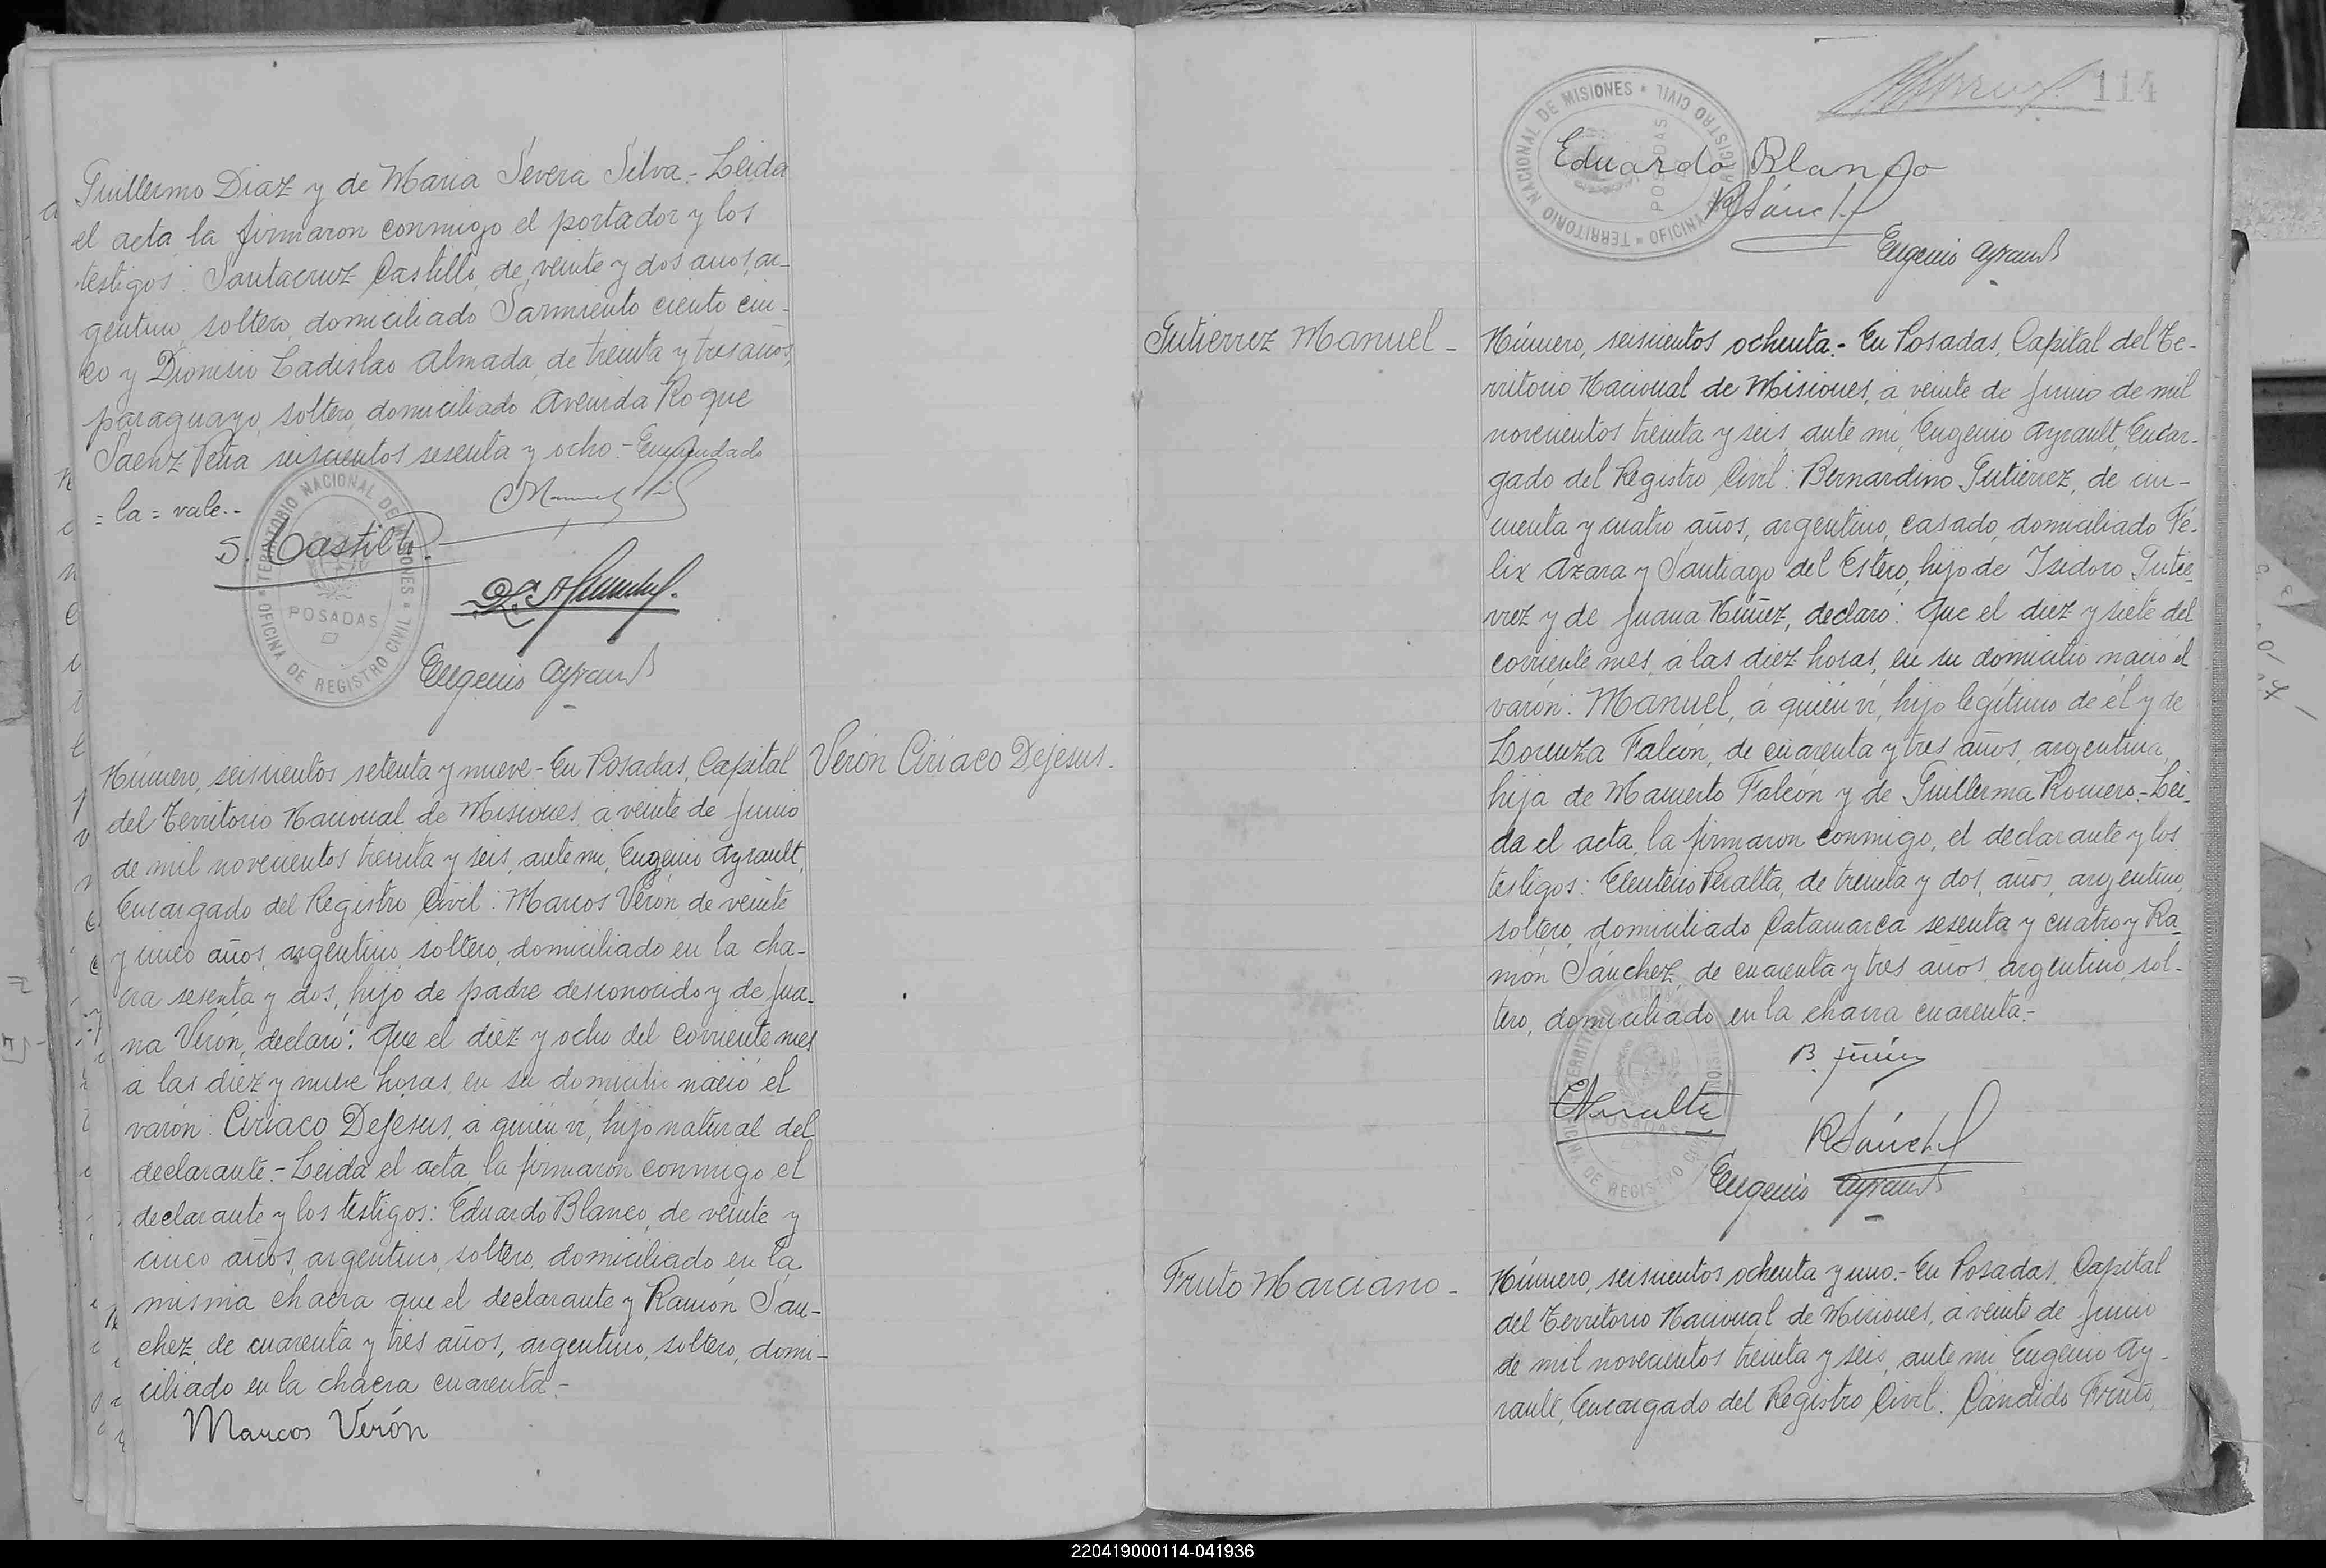 Guillermo Diaz y de Maria Severa Silva.- Leida
el acta la firmaron conmigo el portador y los
testigos: Santacruz Castillo, de veinte y dos anos, ar-
gentino, soltero, domiciliado Sarmiento ciento cin-
co y Dionisio Ladislao Almada, de treinta y tres años,
paraguayo, soltero, domiciliado Avenida Roque
Saenz Peña seiscientos sesenta y ocho.- Enmendado
= la = vale.-
S. Castillo
TERRITORIO NACIONAL DE MISIONES
OFICINA DE REGISTRO CIVIL
POSADAS
Eugenio Ayrault
Número, seiscientos setenta y nueve - En Posadas, Capital
del Territorio Nacional de Misiones, á veinte de Junio
de mil novecientos treinta y seis, ante mi, Eugenio Ayrault,
Encargado del Registro Civil: Marcos Verón, de veinte
y cinco años, argentino, soltero, domiciliado en la cha-
cra sesenta y dos, hijo de padre desconocido y de Jua-
na Verón, declaró: Que el diez y ocho del corriente mes
á las diez y nueve horas, en su domicilio nació el
varón: Ciriaco Dejesus, á quién vi, hijo natural del
declarante.- Leida el acta, la firmaron conmigo el
declarante y los testigos: Eduardo Blanco, de veinte y
cinco años, argentino, soltero, domiciliado en la
misma chacra que el declarante y Ramón Sán-
chez, de cuarenta y tres años, argentino, soltero, domi-
ciliado en la chacra cuarenta.-
Marcos Verón
Verón Ciriaco Dejesus.-
114
TERRITORIO NACIONAL DE MISIONES
OFICINA DE REGISTRO CIVIL
POSADAS
Eduardo Blanco
R Sánchez
Eugenio Ayrault
Gutierrez Manuel -
Número, seiscientos ochenta.- En Posadas, Capital del Te-
rritorio Nacional de Misiones, á veinte de Junio de mil
novecientos treinta y seis ante mi, Eugenio Ayrault, Encar-
gado del Registro Civil: Bernardino Gutierrez, de cin-
cuenta y cuatro años, argentino, casado, domiciliado Fé-
lix Azara y Santiago del Estero, hijo de Isidoro Gutie-
rrez y de Juana Núñez, declaró: Que el diez y siete del
corriente mes, á las diez horas, en su domicilio nació el
varón: Manuel, á quién vi, hijo legítimo de él y de
Lorenza Falcón, de cuarenta y tres años, argentina,
hija de Mamerto Falcón y de Guillerma Romero.- Lei-
da el acta, la firmaron conmigo, el declarante y los
testigos: Eleuterio Peralta, de treinta y dos, años, argentino,
soltero, domiciliado Catamarca sesenta y cuatro y Ra-
món Sánchez, de cuarenta y tres años, argentino, sol-
tero, domiciliado en la chacra cuarenta.-
TERRITORIO NACIONAL MISIONES
DE REGISTRO CIVIL
POSADAS
E Peralta
R Sánchez
Eugenio Ayrault
Fruto Marciano -
Número, seiscientos ochenta y uno.- En Posadas, Capital
del Territorio Nacional de Misiones, á veinte de Junio
de mil novecientos treinta y seis, ante mi Eugenio Ay-
rault, Encargado del Registro Civil: Cándido Fruto,
220419000114-041936